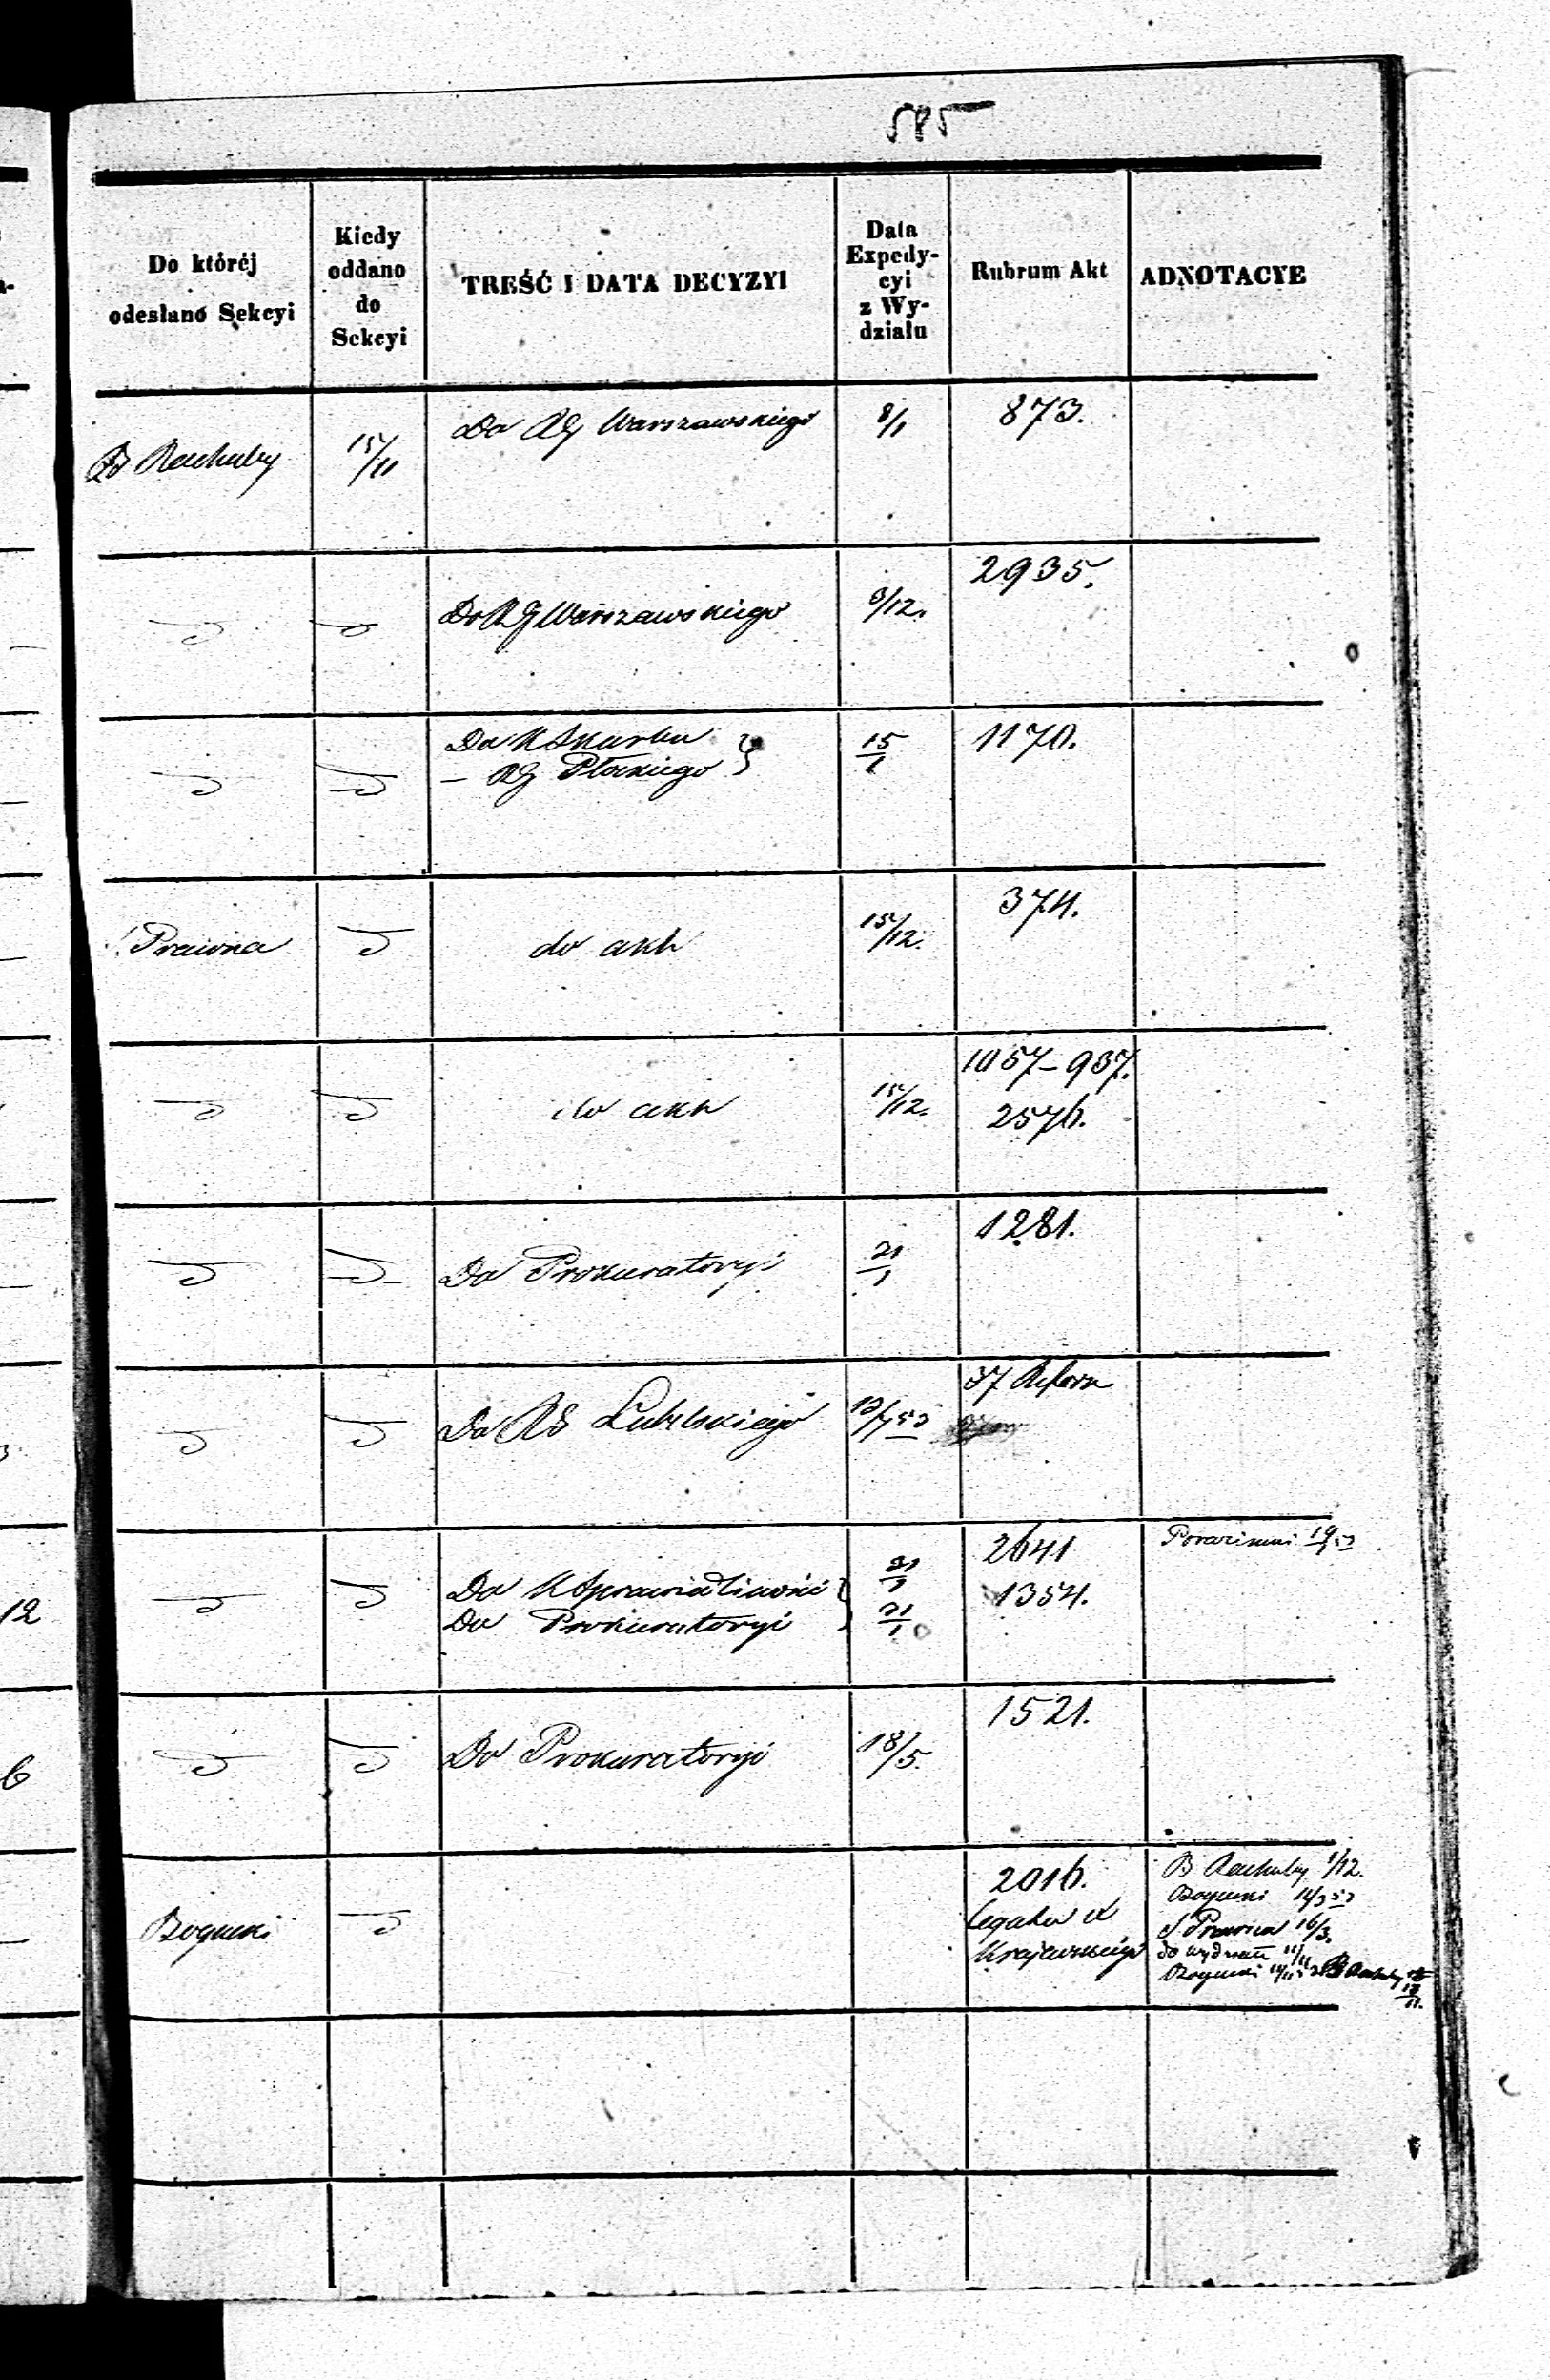 585
Do któréj
odesłano Sekcyi
Kiedy
oddano
do
Sekcyi
TREŚĆ I DATA DECYZYI
Data
Expedy-
cyi
z Wy-
działu
Rubrum Akt
ADNOTACYE
B Rachuby
15/11
Do RG Warszawskiego
8/1
873.
Do RG Warszawskiego
9/12.
2935.
Do K Skarbu
— RG Płockiego
15/1
1170.
S. Prawna
do akt
15/12.
374.
do akt
15/12.
1057 – 937.
2576.
Do Prokuratoryi
21/1
1281.
Do RG Lubelskiego
37
Do K Sprawiedliwości
Do Prokuratoryi
21/1
21/1
2641
1354.
Do Prokuratoryi
18/5.
1521.
Bogucki
2016.
Legata
Krajewskiego
B Rachuby 1/12.
Bogucki
S. Prawna 16/3.
do wydziału 11/11
Bogucki
B Rachuby
12
6